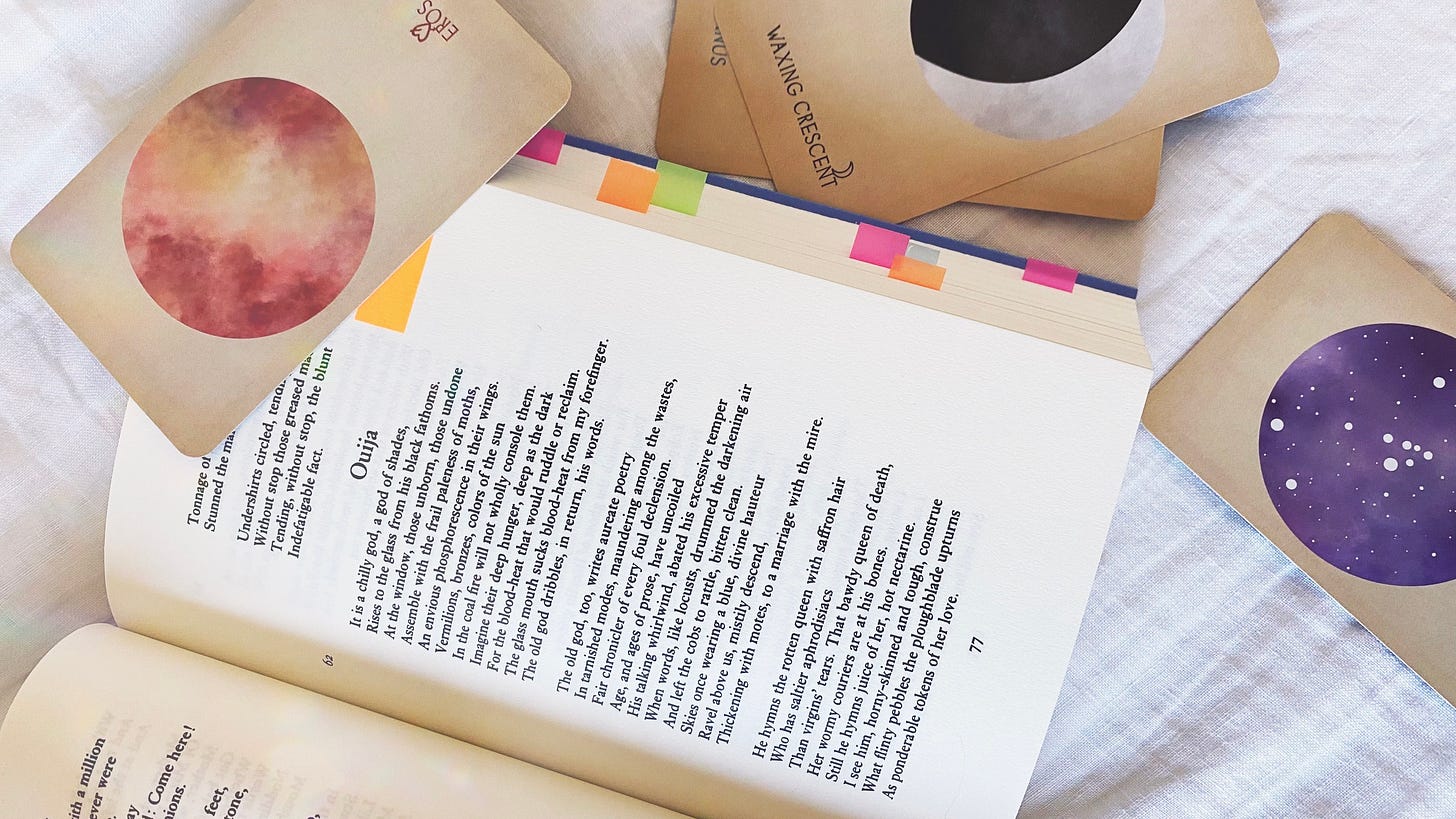 EROS
NUS
WAXING CRESCENT
Tonnage of
Stunned the ma
Undershirts circled, tend
Without stop those greased ma
Tending, without stop, the blunt
Indefatigable fact.
62
Ouija
It is a chilly god, a god of shades,
Rises to the glass from his black fathoms.
At the window, those unborn, those undone
Assemble with the frail paleness of moths,
An envious phosphorescence in their wings.
Vermilions, bronzes, colors of the sun
In the coal fire will not wholly console them.
Imagine their deep hunger, deep as the dark
For the blood-heat that would ruddle or reclaim.
The glass mouth sucks blood-heat from my forefinger.
The old god dribbles, in return, his words.
The old god, too, writes aureate poetry
In tarnished modes, maundering among the wastes,
Fair chronicler of every foul declension.
Age, and ages of prose, have uncoiled
His talking whirlwind, abated his excessive temper
When words, like locusts, drummed the darkening air
And left the cobs to rattle, bitten clean.
Skies once wearing a blue, divine hauteur
Ravel above us, mistly descend,
Thickening with motes, to a marriage with the mire.
He hymns the rotten queen with saffron hair
Who has saltier aphrodisiacs
Than virgins' tears. That bawdy queen of death,
Her wormy couriers are at his bones.
Still he hymns juice of her, hot nectarine.
I see him, horny-skinned and tough, construe
What flinty pebbles the ploughblade upturns
As ponderable tokens of her love.
77
with a million
ever were
ay
! Come here!
nions.
feet,
rone,